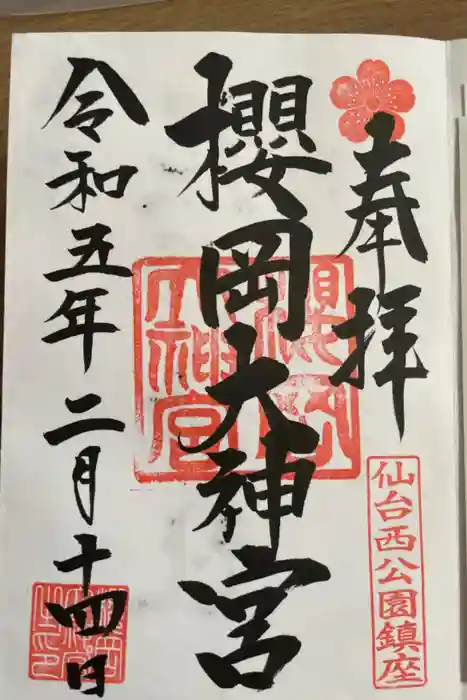 奉拝
仙台西公園鎮座
櫻岡大神宮
櫻岡大神宮
令和五年二月十四日